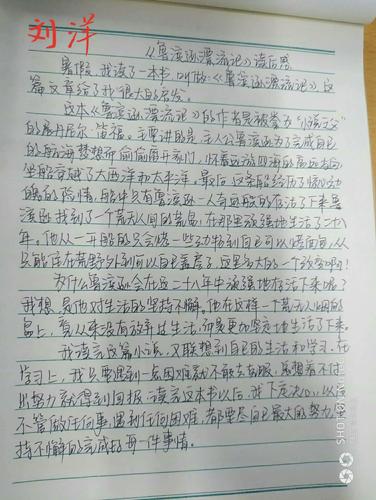 刘洋
《鲁滨逊漂流记》读后感
暑假，我读了一本书，叫做《鲁滨逊漂流记》这
篇文章给了我很大的启发。
这本《鲁滨逊漂流记》的作者是被誉为"小说之父"
的展丹尼尔·笛福。主要讲的是主人公鲁滨逊为了完成自己
的航海梦想而偷偷离开家门，怀着远游四海的高远志向
坐船穿越了大西洋和太平洋。最后，这条船经历了惊心动
魄的险情，船中只有鲁滨逊一人奇迹般的存活了下来鲁
滨逊找到了一个荒无人间的荒岛，在那里顽强地生活了二十八
年。他从一开始的只会 一些 到自己可以烤面包，从
只能住在荒野外到可以自己盖房子，这里多大的一个改变啊！
为什么鲁滨逊会在这二十八年中顽强地存活下来呢？
我想，是他对生活的坚持不懈。他在这样一个荒无人烟的
岛上，看从来没有放弃过生活，而是更加坚定地生活了下来。
我读完这篇小说，又联想到自己的生活和学习，在
学习上，我只要遇到一点困难就不敢去克服，总想着不付
出努力就得到回报，读完这本书以后，我下定决心，以后
不管做任何事，遇到任何困难，都要尽自己最大的努力坚
持不懈的完成好每一件事情。
SHOT ON